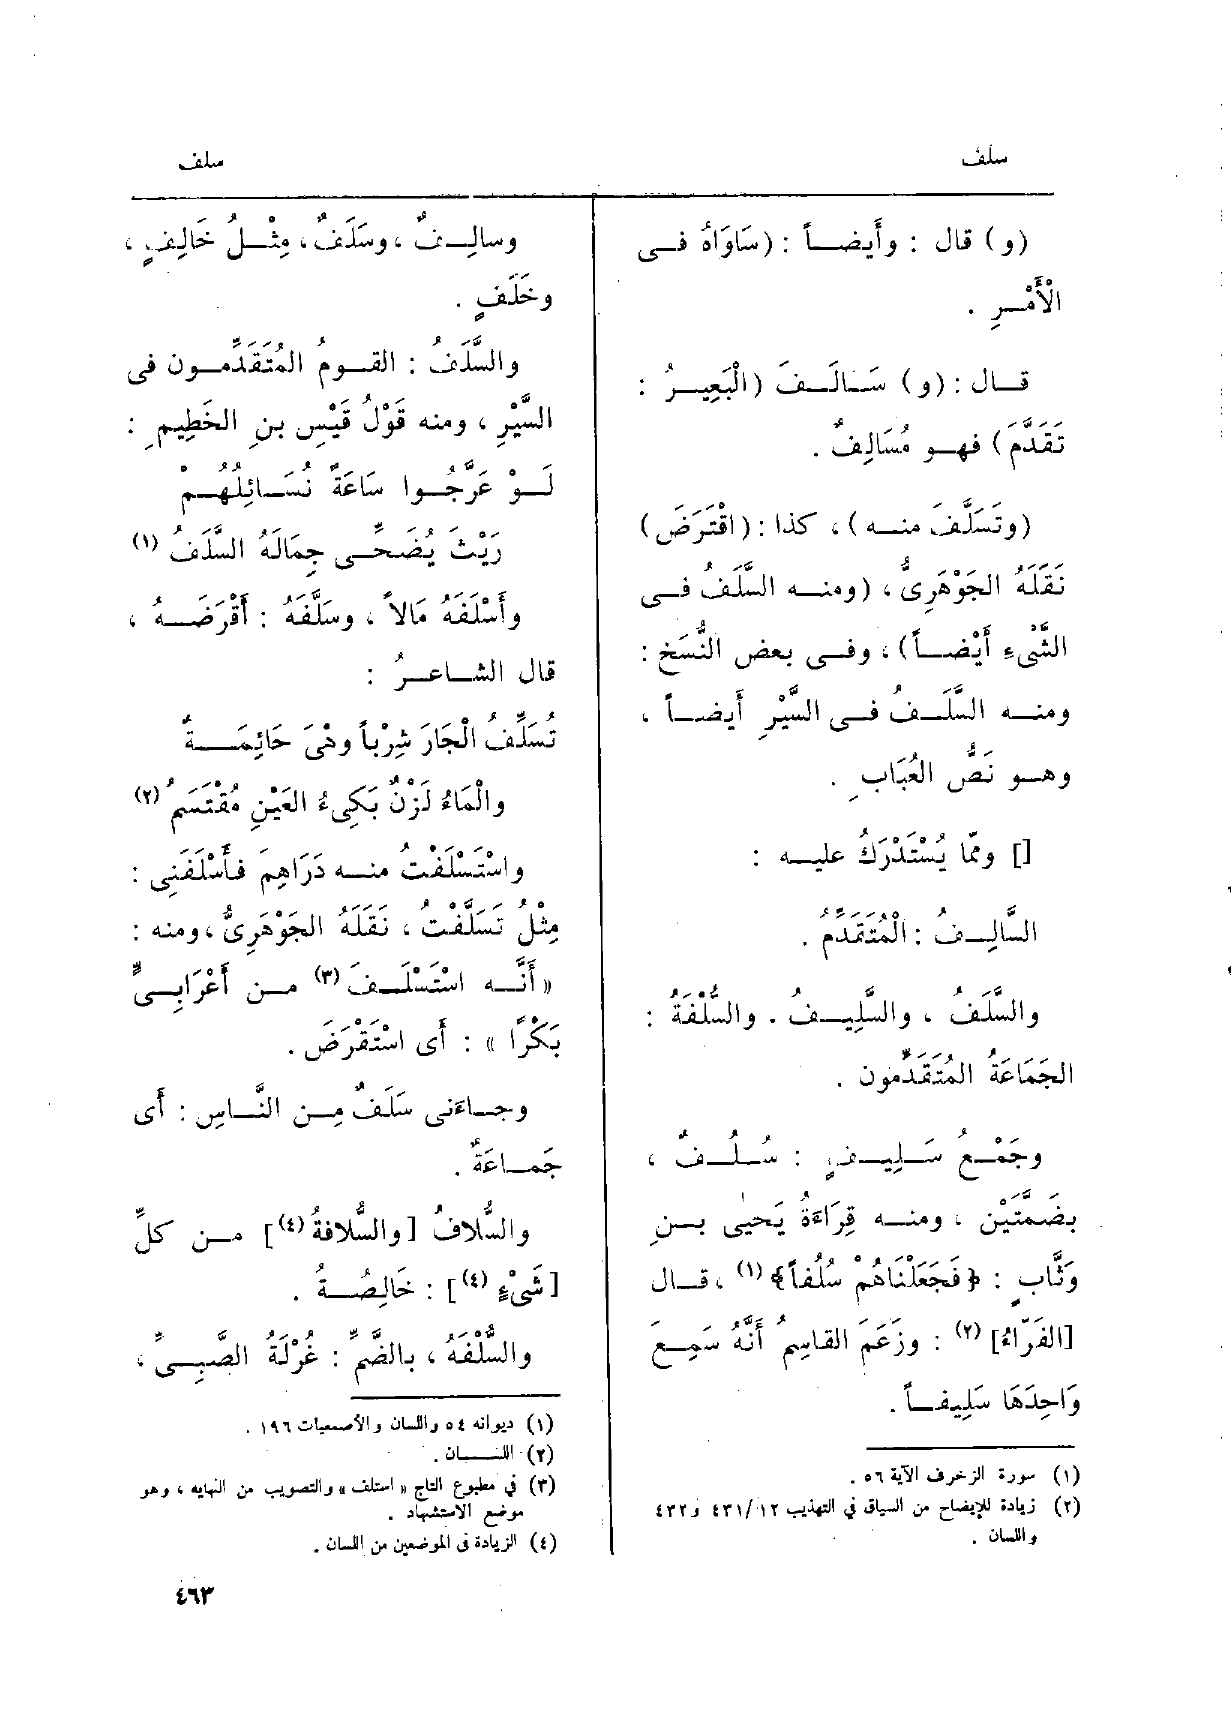 سلف
سلف
(و) قال : وأَيضاً : (سَاوَاهُ فى
الْأَمْرِ .
قال : (و) سَالَفَ (الْبَعِيرُ :
تَقَدَّمَ) فهو مُسَالِفٌ .
(وتَسَلَّفَ منه) ، كذا : (اقْتَرَضَ)
نَقَلَهُ الجَوْهَرِىُّ ، (ومنه السَّلَفُ فى
الشَّىْءِ أَيْضاً) ، وفى بعض النُّسَخِ :
ومنه السَّلَفُ فى السَّيْرِ أَيضاً ،
وهو نَصُّ العُبَابِ .
[] وممّا يُسْتَدْرَكُ عليه :
السَّالِفُ : الْمُتَقَدِّمُ .
والسَّلَفُ ، والسَّلِيفُ . والسُّلْفَةُ :
الجَمَاعَةُ المُتَقَدِّمون .
وجَمْعُ سَلِيفٍ : سُلُفٌ ،
بضَمَّتَيْن ، ومنه قِرَاءَةُ يَحْيَى بنِ
وَثَّابٍ : ﴿فَجَعَلْنَاهُمْ سُلُفاً﴾ (١) ، قال
[الفَرَّاءُ] (٢) : وزَعَمَ القاسِمُ أَنَّهُ سَمِعَ
وَاحِدَهَا سَلِيفاً .
(١) سورة الزخرف الآية ٥٦ .
(٢) زيادة للإيضاح من السياق في التهذيب ١٢/ ٤٣١ و ٤٣٢
واللسان .
وسالِفٌ ، وسَلَفٌ ، مِثْلُ خَالِفٍ ،
وخَلَفٍ .
والسَّلَفُ : القومُ المُتَقَدِّمون فى
السَّيْرِ ، ومنه قَوْلُ قَيْسِ بنِ الخَطِيمِ :
لَوْ عَرَّجُوا سَاعَةً نُسَائِلُهُمْ
رَيْثَ يُضَحِّى جِمَالَهُ السَّلَفُ (١)
وأَسْلَفَهُ مَالاً ، وسَلَّفَهُ : أَقْرَضَهُ ،
قال الشاعرُ :
تُسَلِّفُ الْجَارَ شِرْباً وهْىَ حَائِمَةٌ
والْمَاءُ لَزْنٌ بَكِىءُ العَيْنِ مُقْتَسَمُ (٢)
واسْتَسْلَفْتُ منه دَرَاهِمَ فأَسْلَفَنِى :
مِثْلُ تَسَلَّفْتُ ، نَقَلَهُ الجَوْهَرِىُّ ، ومنه :
« أَنَّه اسْتَسْلَفَ (٣) من أَعْرَابِىٍّ
بَكْرًا » : أَى اسْتَقْرَضَ .
وجاءَنى سَلَفٌ مِن النَّاسِ : أَى
جَماعَةٌ .
والسُّلافُ [والسُّلافةُ (٤)] من كلِّ
[شَىْءٍ (٤)] : خَالِصُهُ .
والسُّلْفَةُ ، بالضَّمِّ : غُرْلَةُ الصَّبِىِّ ،
(١) ديوانه ٥٤ واللسان والأصمعيات ١٩٦ .
(٢) اللسان .
(٣) في مطبوع التاج « استلف » والتصويب من النهاية ، وهو
موضع الاستشهاد .
(٤) الزيادة فى الموضعين من اللسان .
٤٦٣